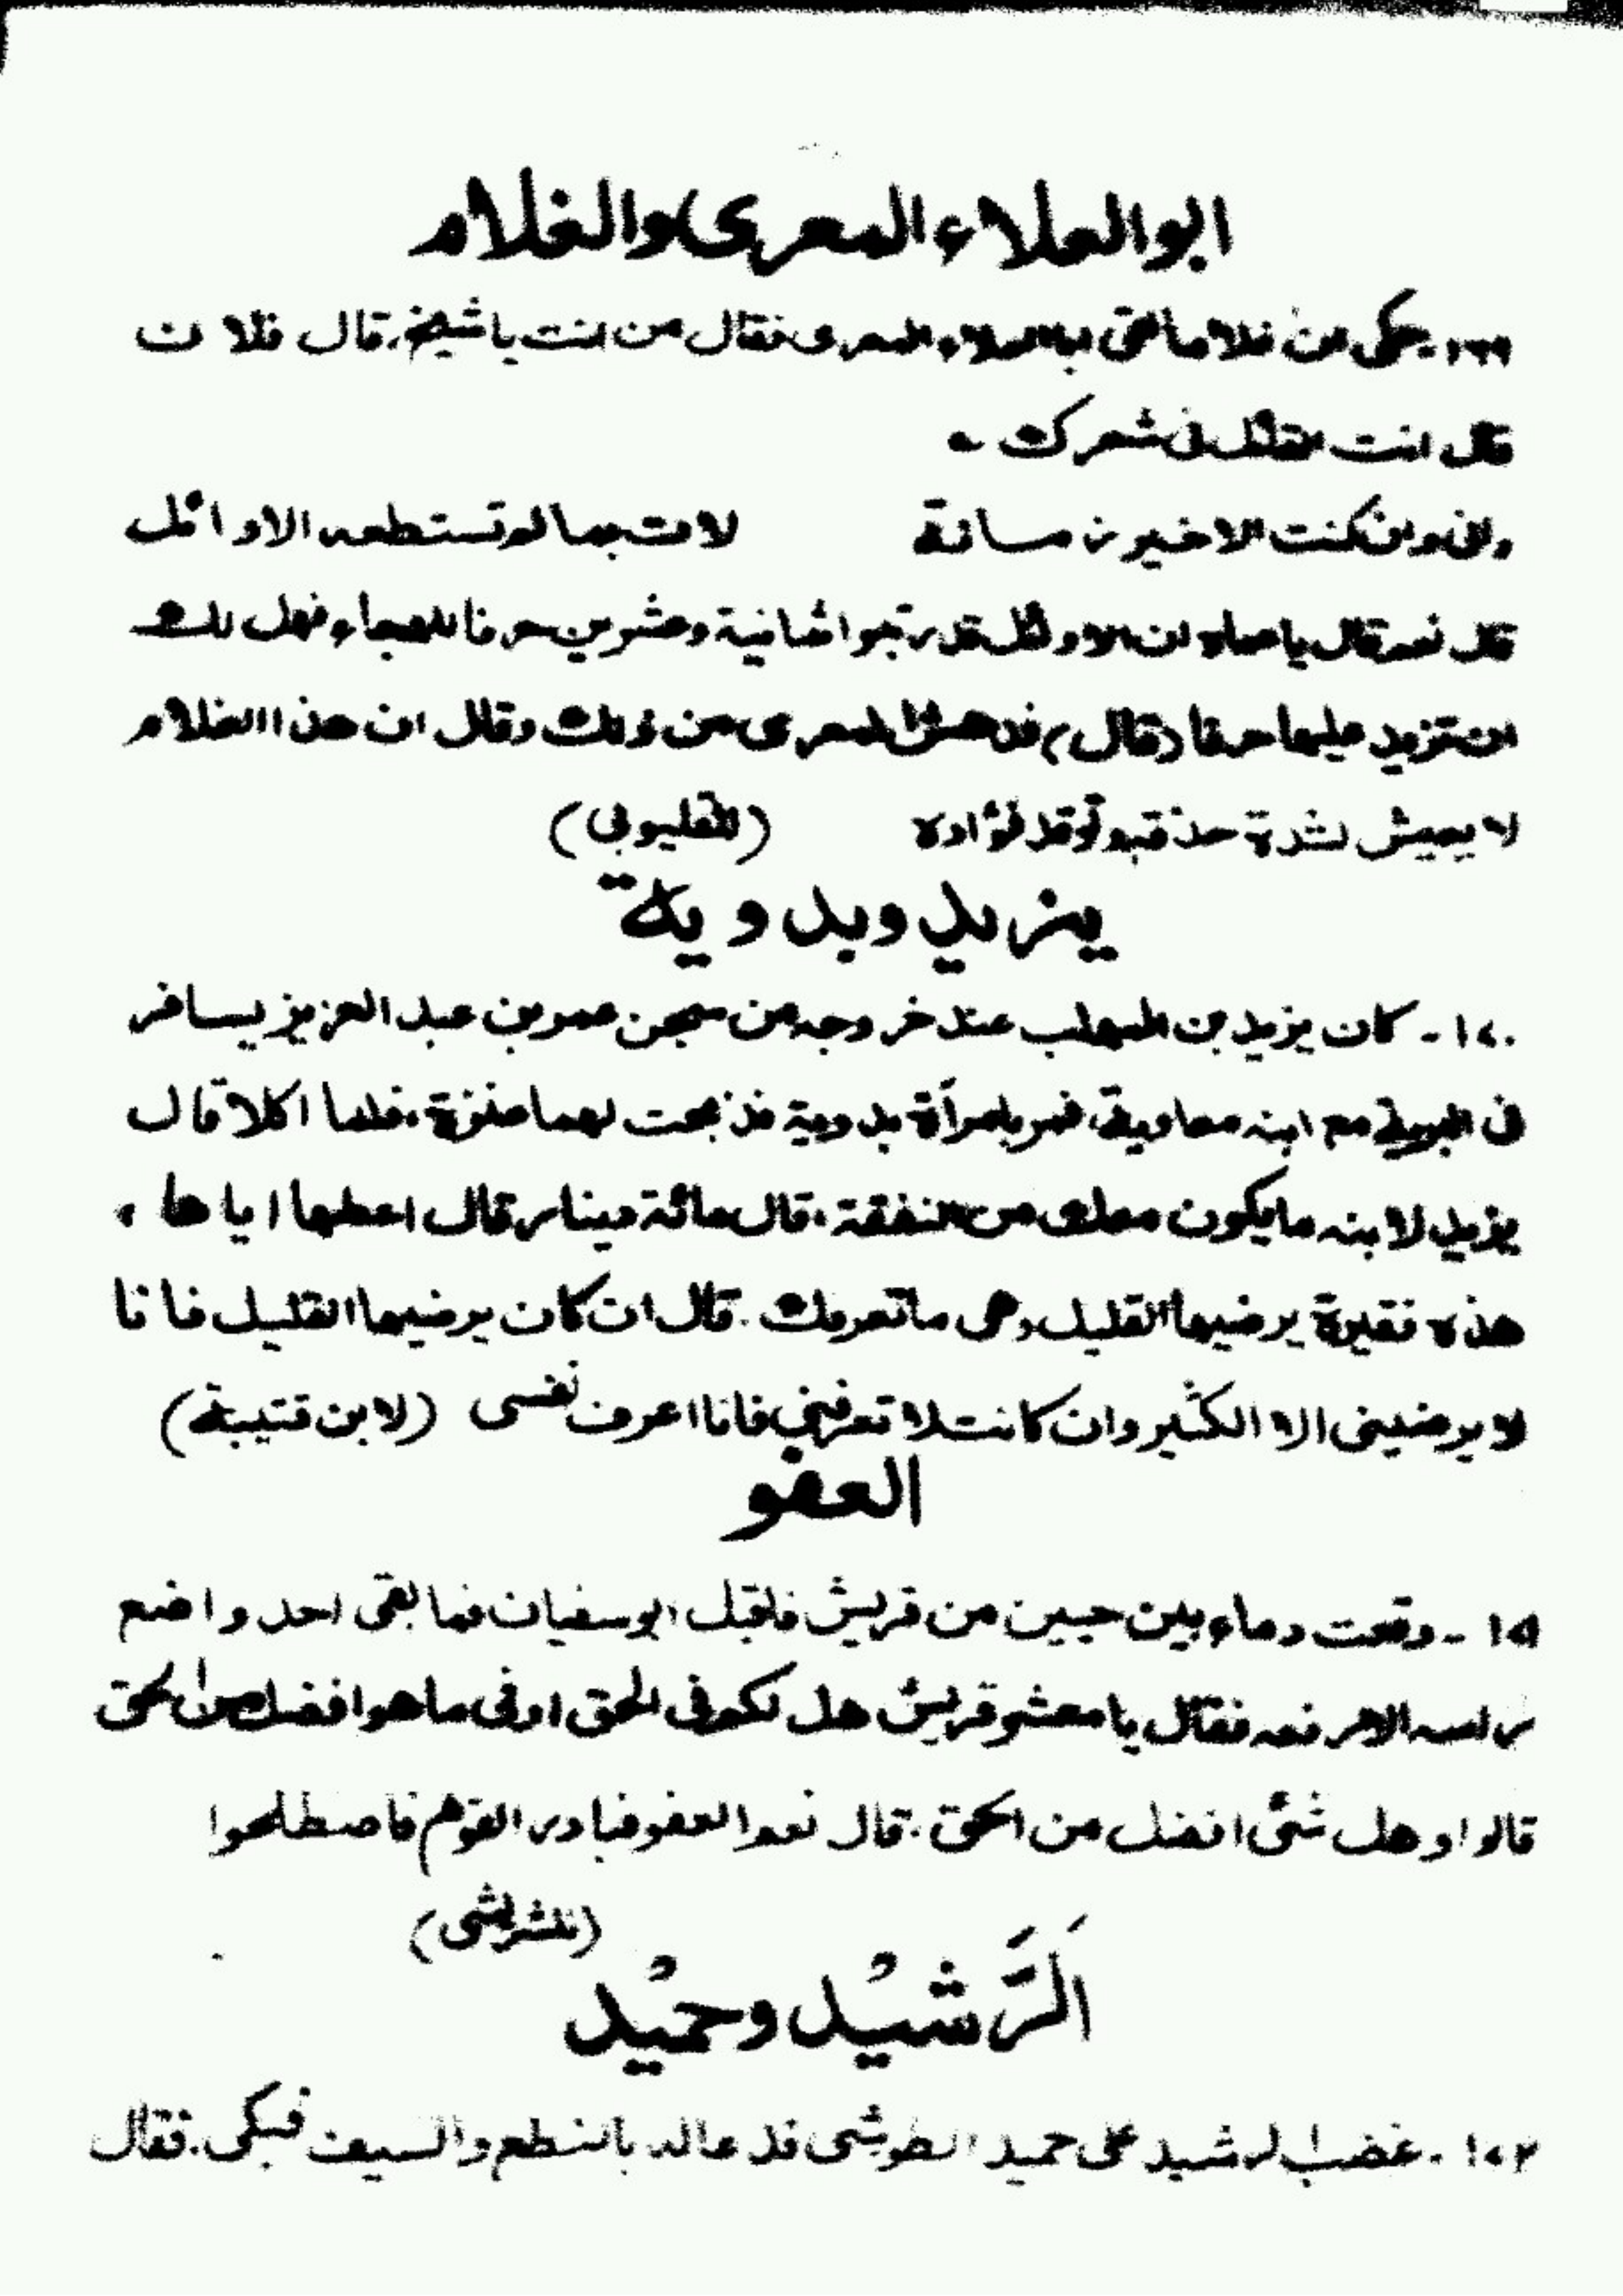 ابو العلاء المعرى والغلام
١٦٩- حكى ان غلاما لقى ابا العلاء المعرى فقال من انت يا شيخ. قال فلان
قال انت القائل فى شعرك
وانى وان كنت الاخير زمانة لات بما لم تستطعه الاوائل
قال نعم قال يا عماه ان الاوائل قد رتبوا ثمانية وعشرين حرفا للهجاء فهل لك
ان تزيد عليها حرفا (قال) فدهش المعرى من ذلك وقال ان هذا الغلام
لا يعيش لشدة حذقه وتوقد فؤاده (للقليوبي)
يزيد وبدوية
١٧٠- كان يزيد بن المهلب عند خروجه من سجن عمر بن عبد العزيز يسافر
فى البرية مع ابنه معاوية، فمر بامرأة بدوية فذبحت لهما عنزة، فلما اكلا قال
يزيد لابنه ما يكون معك من النفقة، قال مائة دينار قال اعطها اياها،
هذه فقيرة يرضيها القليل وهى ما تعرفك. قال ان كان يرضيها القليل فانا
لا يرضينى الا الكثير وان كانت لا تعرفني فانا اعرف نفسى (لابن قتيبة)
العفو
١٧١- وقعت دماء بين حيين من قريش فاقبل ابو سفيان فما بقى احد واضع
راسه الا رفعه فقال يا معشر قريش هل لكم فى الحق او فى ما هو افضل من الحق
قالوا وهل شئ افضل من الحق. قال نعم العفو فبادر القوم فاصطلحوا
(للشريشى)
اَلرَّشيْد وحميْد
١٧٢- غضب الرشيد على حميد الطوسى فدعا له بالنطع والسيف فبكى. فقال